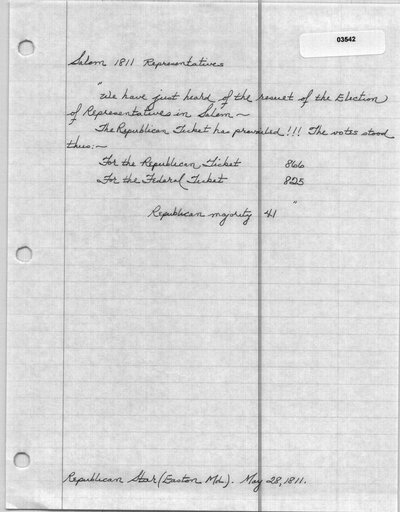 03542
Salem 1811 Representatives
"We have just heard of the result of the Election
of Representatives in Salem ~
The Republican Ticket has prevailed!!! The votes stood
thus:~
For the Republican Ticket 866
For the Federal Ticket 825
Republican majority 41"
Republican Star (Easton Md.). May 28, 1811.